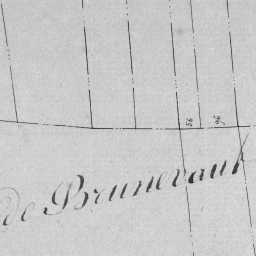 56
96
de Brunevaut